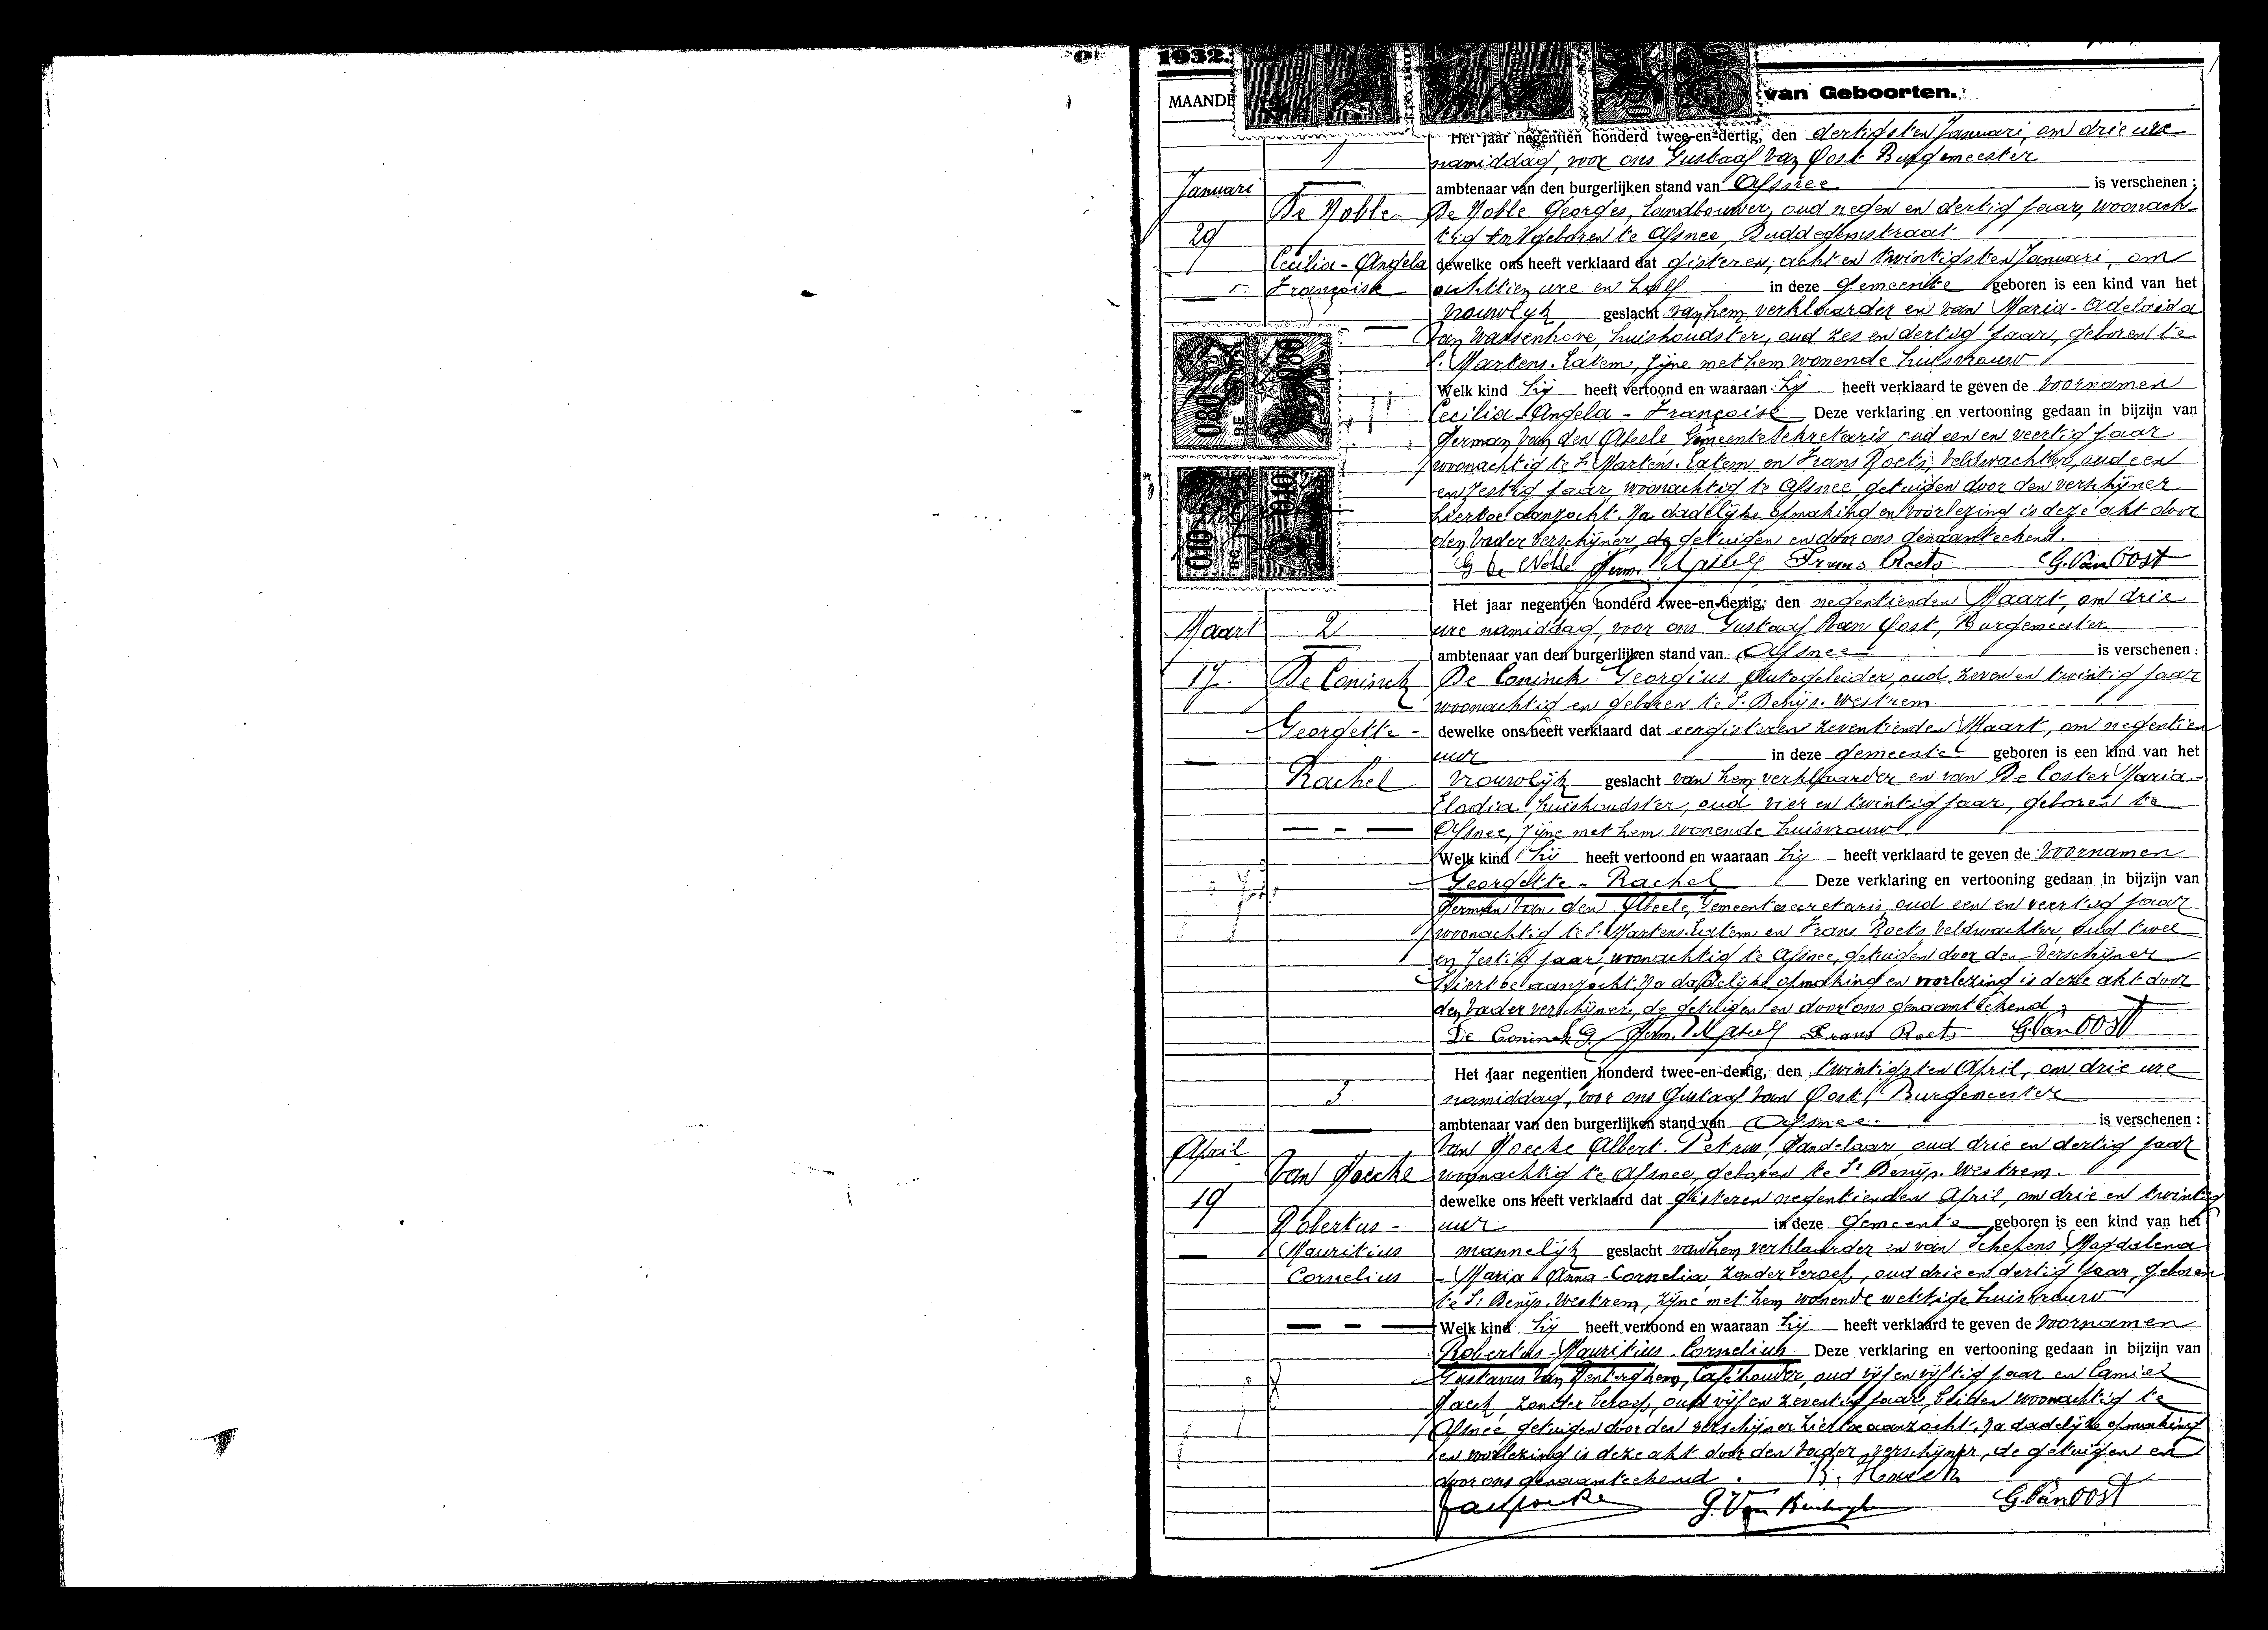 1932.
MAANDE
van Geboorten.
Het jaar negentien honderd twee-en-dertig, den dertigsten Januari, om drie ure
1
namiddag, voor ons Gustaaf Van Oost Burgemeester
Januari
ambtenaar van den burgerlijken stand van Afsnee is verschenen :
De Noble
De Noble Georges, Landbouwer, oud negen en dertig jaar, woonach-
29
tig en geboren te Afsnee, Buddegemstraat
Cecilia - Angela
dewelke ons heeft verklaard dat gisteren, acht en twintigsten Januari, om
Françoise
achttien ure en half in deze gemeente geboren is een kind van het
vrouwlijk geslacht van hem verklaarder en van Maria-Adelaida
Van Wassenhove, huishoudster, oud zes en dertig jaar, geboren te
St Martens-Latem, zijne met hem wonende huisvrouw
Welk kind hij heeft vertoond en waaraan hij heeft verklaard te geven de voornamen
080
9E
080
8E
Cecilia - Angela - Françoise Deze verklaring en vertooning gedaan in bijzijn van
Herman Van den Abeele Gemeentesekretaris oud een en veertig jaar
woonachtig te St Martens-Latem en Frans Roets, Veldwachter, oud een
en zestig jaar, woonachtig te Afsnee, getuigen door den verschijner
010
8C
010
hiertoe aanzocht. Na dadelijke opmaking en voorlezing is deze akt door
den Vader verschijner, de getuigen en door ons genaamteekend.
G De Noble Herm. Vd Abeele Frans Roets G. Van Oost
Het jaar negentien honderd twee-en-dertig, den negentienden Maart, om drie
Maart
2
ure namiddag, voor ons Gustaaf Van Oost, Burgemeester
ambtenaar van den burgerlijken stand van Afsnee is verschenen :
17.
De Coninck
De Coninck Georgius Autogeleider, oud zeven en twintig jaar
woonachtig en geboren te St Denijs-Westrem
Georgette -
dewelke ons heeft verklaard dat eergisteren zeventienden Maart, om negentien
uur in deze gemeente geboren is een kind van het
Rachel
vrouwlijk geslacht van hem verklaarder en van De Coster Maria-
Elodia, huishoudster, oud vier en twintig jaar, geboren te
Afsnee, zijne met hem wonende huisvrouw
Welk kind hij heeft vertoond en waaraan hij heeft verklaard te geven de voornamen
Georgette - Rachel Deze verklaring en vertooning gedaan in bijzijn van
Herman Van den Abeele, Gemeentesecretaris oud een en veertig jaar
woonachtig te St Martens-Latem en Frans Roets Veldwachter, oud twee
en zestig jaar, woonachtig te Afsnee, getuigen door den verschijner
hiertoe aanzocht. Na dadelijke opmaking en voorlezing is deze akt door
den Vader verschijner, de getuigen en door ons genaamteekend,
De Coninck G. Herm. Vd Abeele Frans Roets G. Van Oost
Het jaar negentien honderd twee-en-dertig, den twintigsten April, om drie ure
3
namiddag, voor ons Gustaaf Van Oost, Burgemeester
ambtenaar van den burgerlijken stand van Afsnee is verschenen :
April
Van Hoecke Albert-Petrus, Handelaar, oud drie en dertig jaar
Van Hoecke
woonachtig te Afsnee, geboren te St Denijs-Westrem.
19
dewelke ons heeft verklaard dat gisteren negentienden April, om drie en twintig
Robertus -
uur in deze gemeente geboren is een kind van het
Mauritius
mannelijk geslacht van hem verklaarder en van Schepens Magdalena
Cornelius
- Maria - Anna - Cornelia, zonder beroep, oud drie en dertig jaar, geboren
te St Denijs-Westrem, zijne met hem wonende wettige huisvrouw
Welk kind hij heeft vertoond en waaraan hij heeft verklaard te geven de voornamen
Robertus - Mauritius - Cornelius Deze verklaring en vertooning gedaan in bijzijn van
Gustavus Van Renterghem, Caféhouder, oud vijf en vijftig jaar en Camiel
Haeck, zonder beroep, oud vijf en zeventig jaar, beiden woonachtig te
Afsnee, getuigen door den verschijner hiertoe aanzocht. Na dadelijke opmaking
en voorlezing is deze akt door den Vader, verschijner, de getuigen en
door ons genaamteekend.
Van Hoecke G. Van Renterghem G. Van Oost